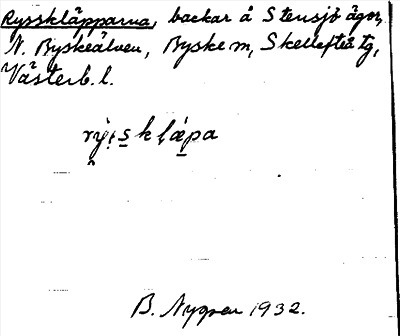 Rysskläpparna, backar å Stensjö ägor,
N. Byskeälven, Byske m, Skellefteå tg,
Västerb. l.
rỳ̭ṣk l̨æpa
B. Nygren 1932.